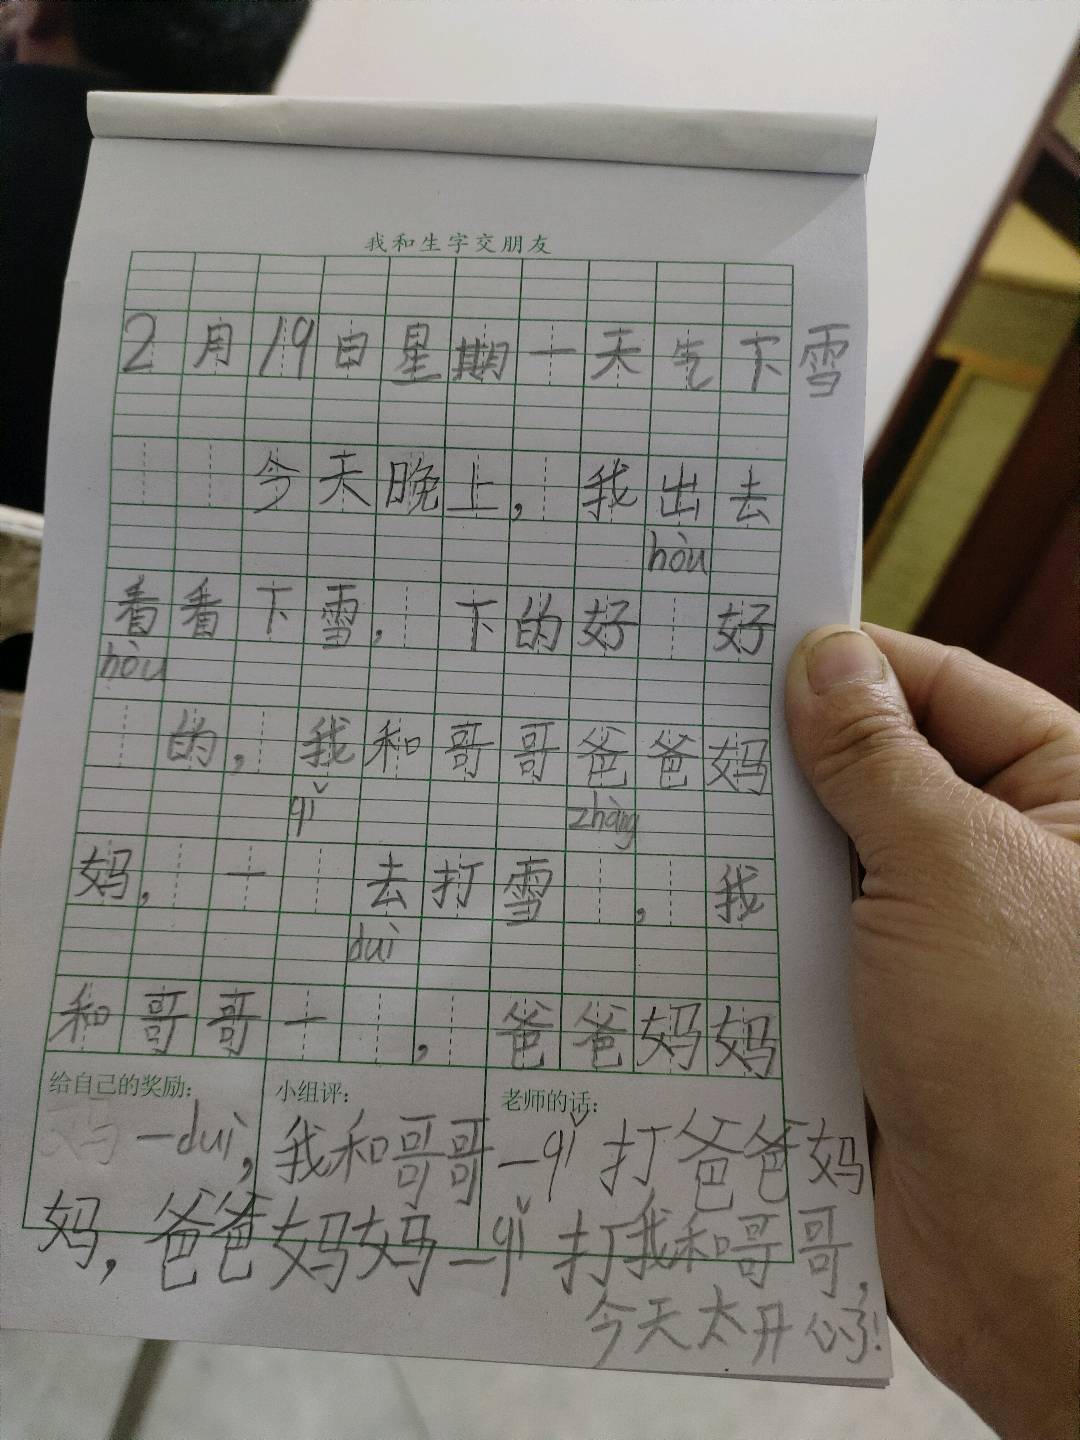 我和生字交朋友
2月19日星期一天气下雪
今天晚上，我出去
hòu
看看下雪，下的好 好
hòu
的，我和哥哥爸爸妈
qǐ zhàng
妈，一 去打雪 ，我
duì
和哥哥一 ，爸爸妈妈
给自己的奖励： 小组评： 老师的话：
妈一duì，我和哥哥一qǐ打爸爸妈
妈，爸爸妈妈一qǐ打我和哥哥，
今天太开心了！